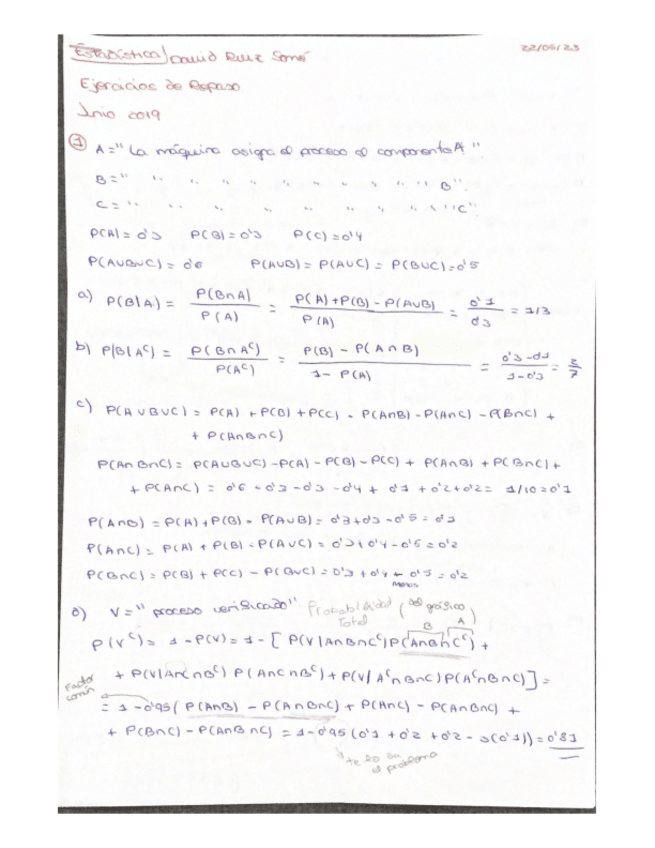 Estadística / David Ruiz 22/05/23
Ejercicios de Repaso
Junio 2019
① A = " La máquina asigna el proceso al componente A "
B = " " " " " " " " " " B "
C = " " " " " " " " " " "C"
P(A) = 0'3 P(B) = 0'3 P(C) = 0'4
P(A∪B∪C) = 0'6 P(A∪B) = P(A∪C) = P(B∪C) = 0'5
a) P(B|A) = P(B∩A) / P(A) = P(A) + P(B) - P(A∪B) / P(A) = 0'1 / 0'3 = 1/3
b) P(B|Aᶜ) = P(B∩Aᶜ) / P(Aᶜ) = P(B) - P(A∩B) / 1 - P(A) = 0'3 - 0'1 / 1 - 0'3 = 2/7
c) P(A∪B∪C) = P(A) + P(B) + P(C) - P(A∩B) - P(A∩C) - P(B∩C) +
+ P(A∩B∩C)
P(A∩B∩C) = P(A∪B∪C) - P(A) - P(B) - P(C) + P(A∩B) + P(B∩C) +
+ P(A∩C) = 0'6 - 0'3 - 0'3 - 0'4 + 0'1 + 0'2 + 0'2 = 1/10 = 0'1
P(A∩B) = P(A) + P(B) - P(A∪B) = 0'3 + 0'3 - 0'5 = 0'1
P(A∩C) = P(A) + P(B) - P(A∪C) = 0'3 + 0'4 - 0'5 = 0'2
P(B∩C) = P(B) + P(C) - P(B∪C) = 0'3 + 0'4 - 0'5 = 0'2
menos
d) V = " proceso verificado" Probabilidad Total ( del gráfico
B A
P(Vᶜ) = 1 - P(V) = 1 - [ P(V|A∩B∩Cᶜ) P(A∩B∩Cᶜ) +
+ P(V|A∩C∩Bᶜ) P(A∩C∩Bᶜ) + P(V|Aᶜ∩B∩C) P(Aᶜ∩B∩C) ] =
Factor común
= 1 - 0'95 ( P(A∩B) - P(A∩B∩C) + P(A∩C) - P(A∩B∩C) +
+ P(B∩C) - P(A∩B∩C) = 1 - 0'95 (0'1 + 0'2 + 0'2 - 3(0'1)) = 0'81
te lo da el problema